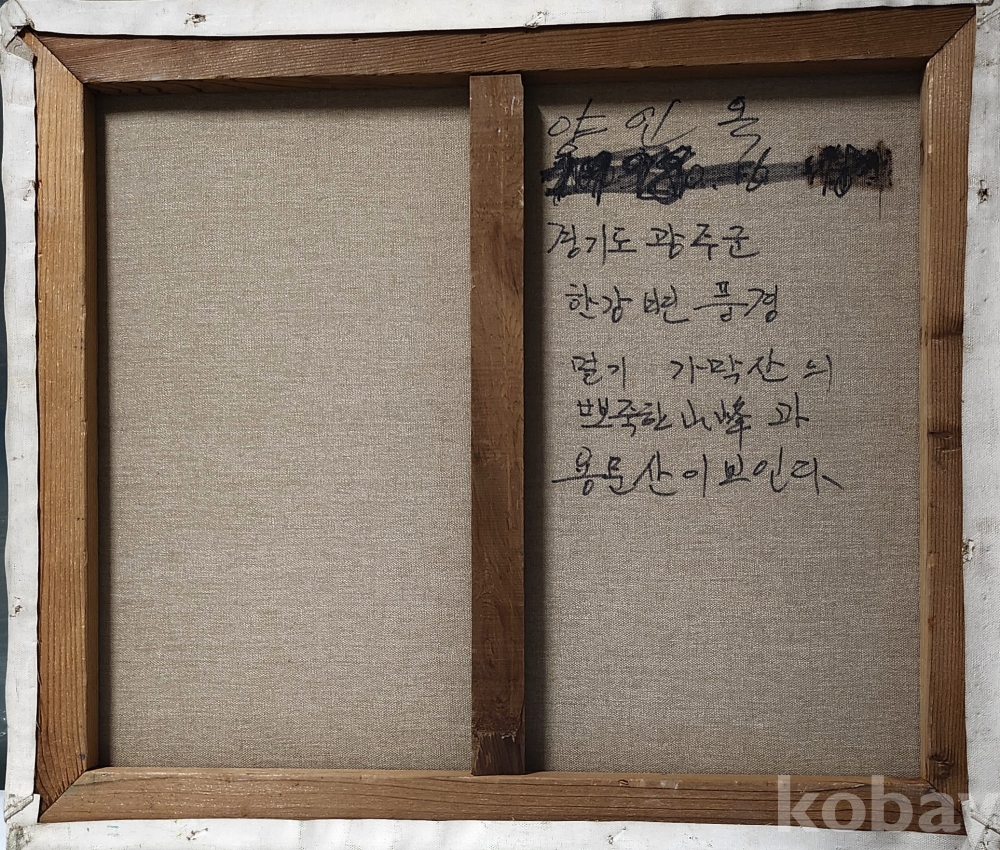 양인옥
경기도 광주군
한강변 풍경
멀리 가막산의
뾰죽한 山峰과
용문산이 보인다.
kobay